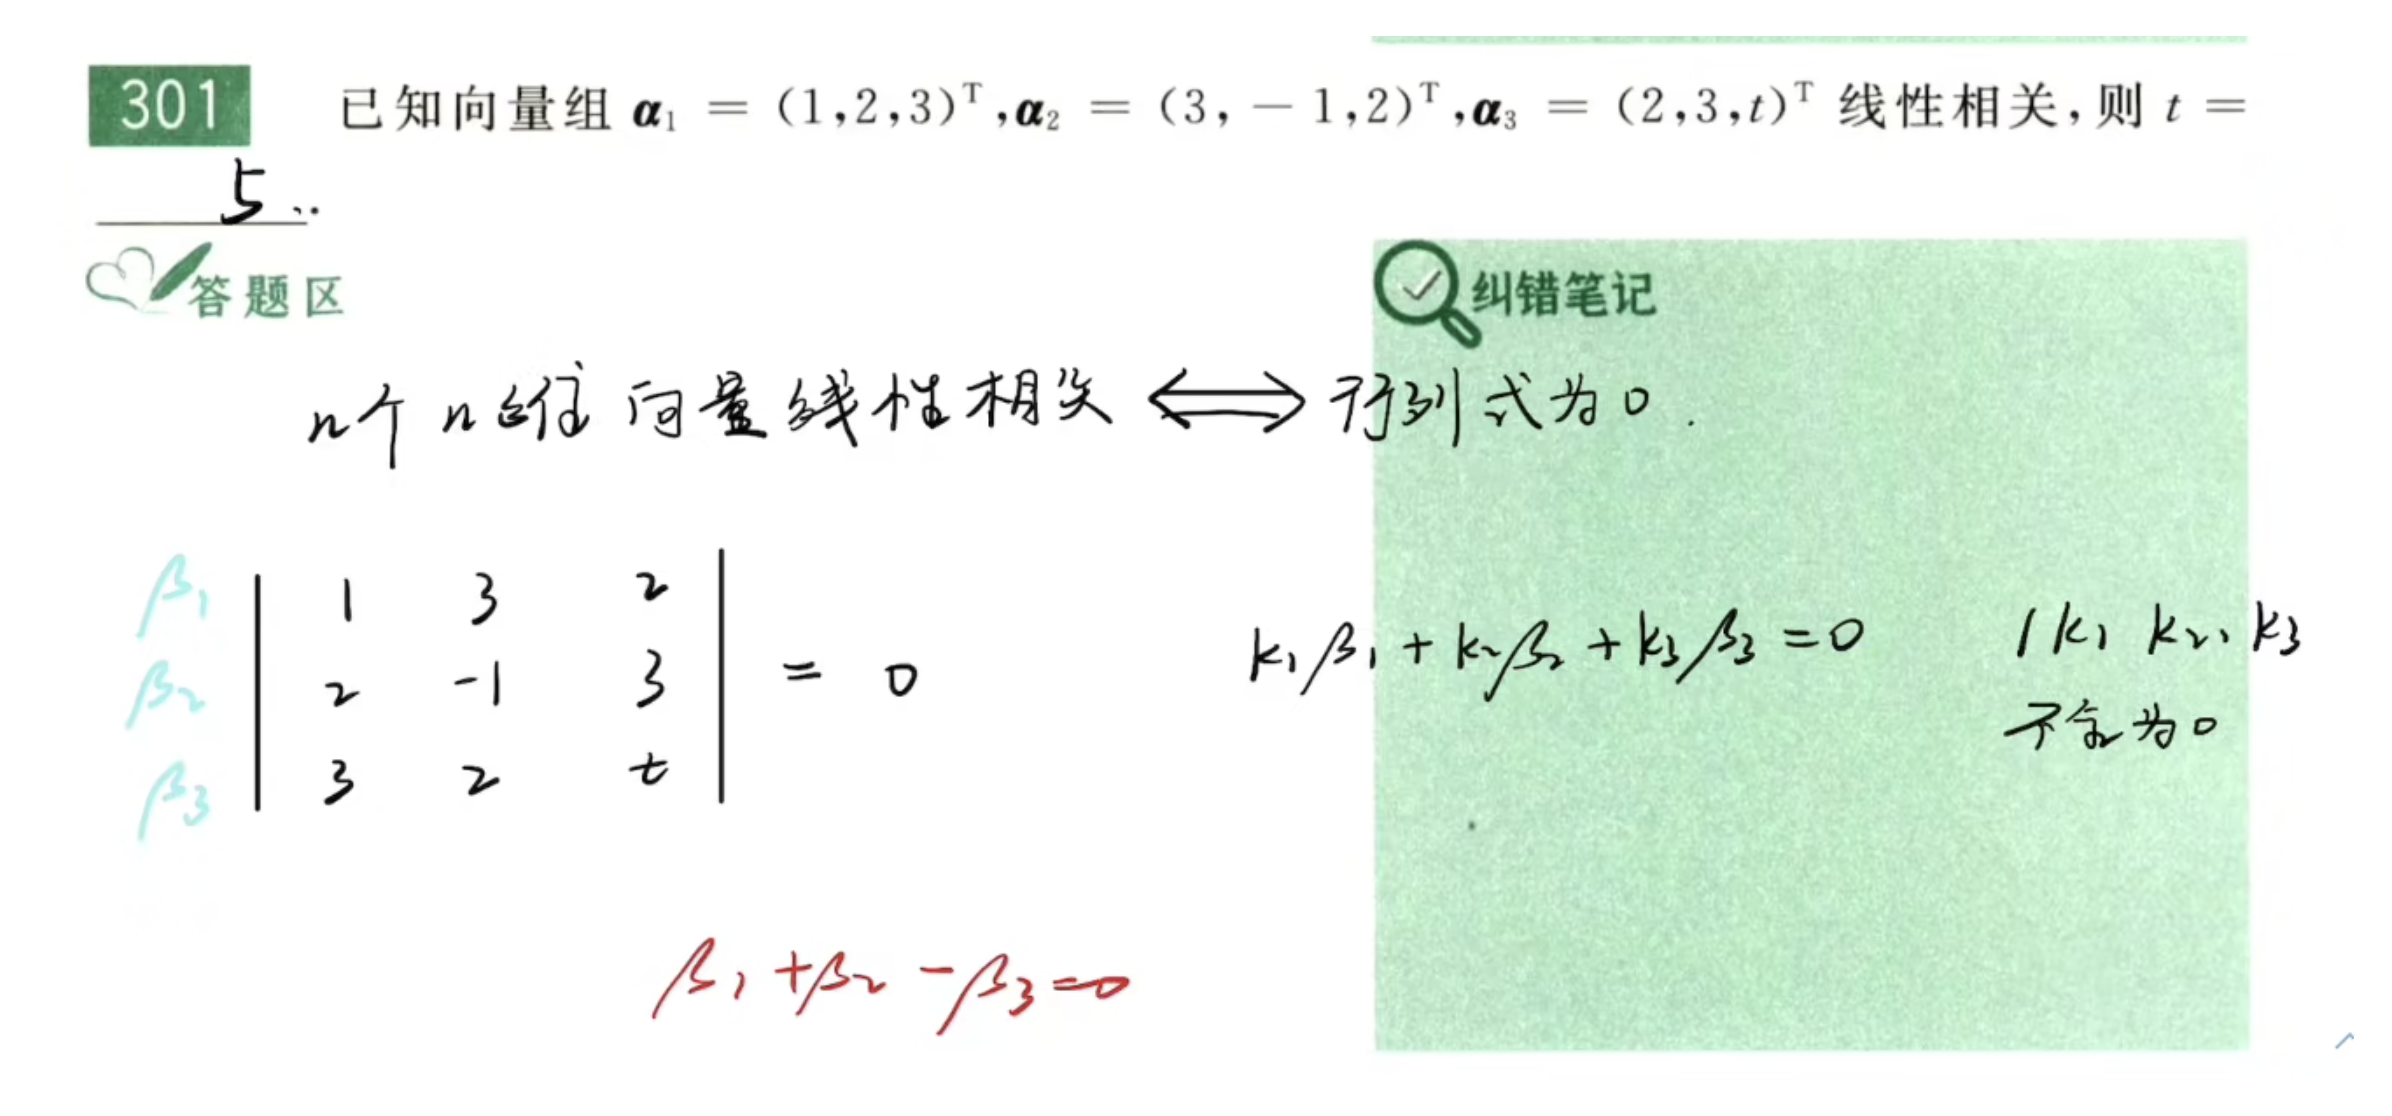 301 已知向量组 α₁ = (1,2,3)ᵀ,α₂ = (3,－1,2)ᵀ,α₃ = (2,3,t)ᵀ 线性相关,则 t =
5 ..
答题区
纠错笔记
n个n维向量线性相关 ⟺ 行列式为0.
β₁ | 1 3 2 |
β₂ | 2 -1 3 | = 0
β₃ | 3 2 t |
k₁β₁ + k₂β₂ + k₃β₃ = 0 (k₁ k₂, k₃
不全为0
β₁ + β₂ - β₃ = 0